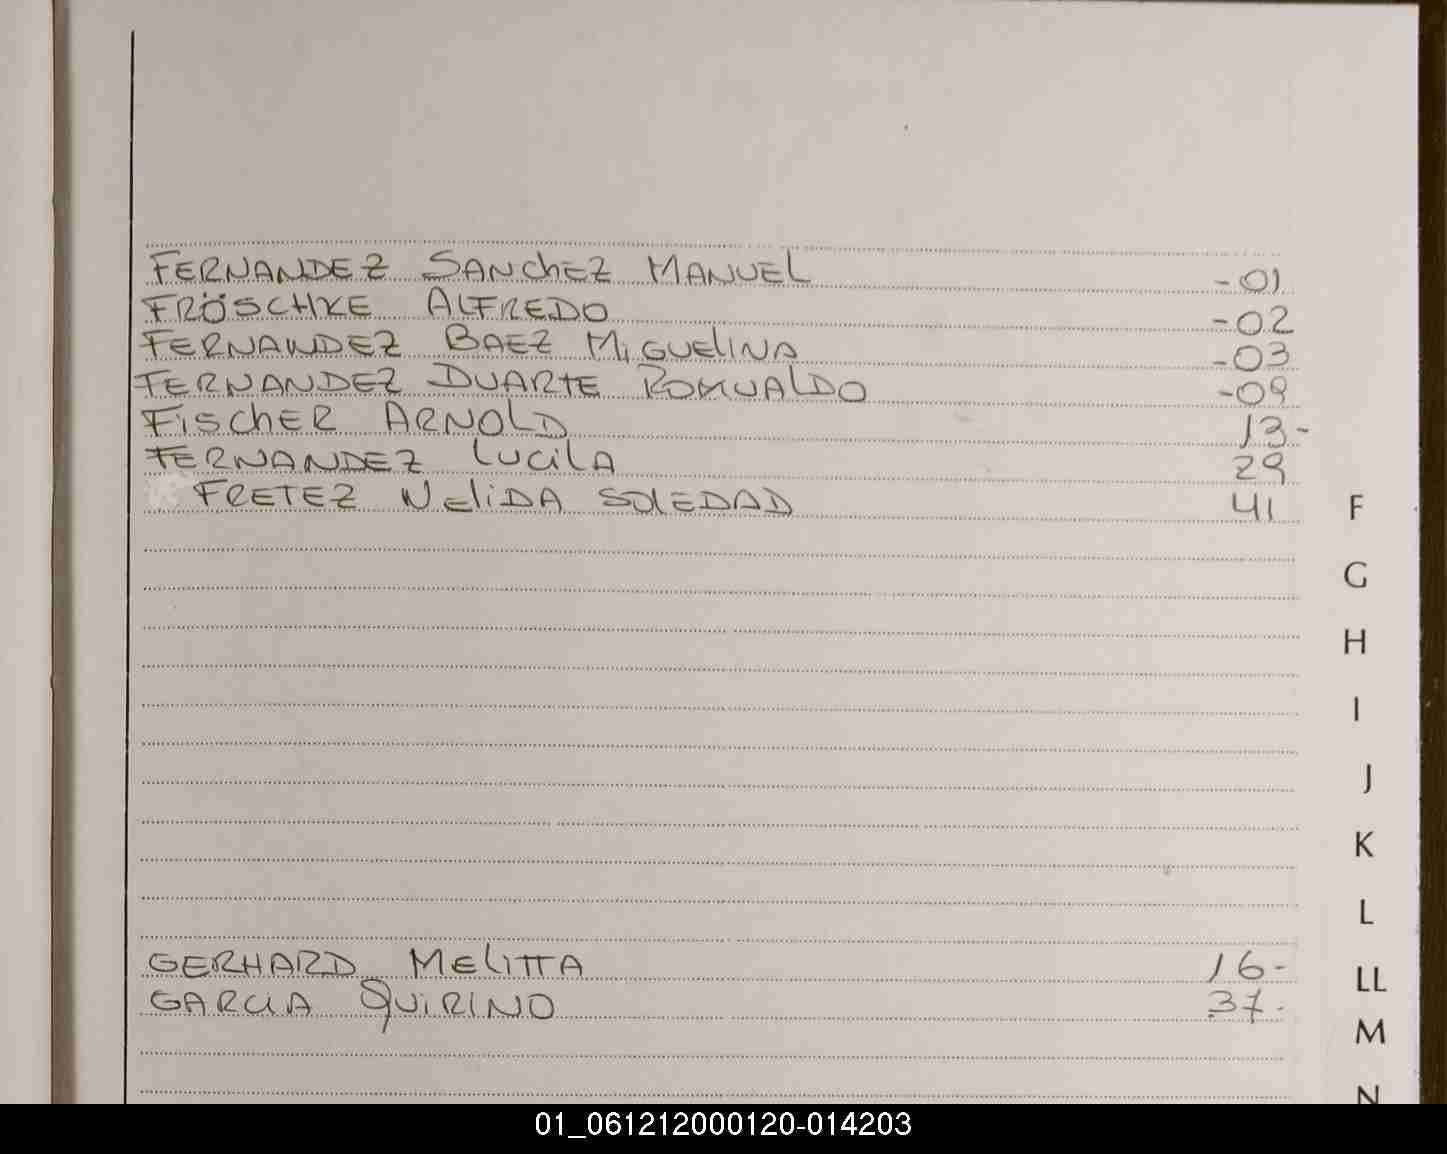 FERNANDEZ SANchEZ MANUEL -01
FRÖSCHKE ALFREDO -02
FERNANDEZ BAEZ MiGUElINA -03
FERNANDEZ DUARTE ROMUALDO -09
FiSchER ARNOLD 13-
FERNANDEZ LUCilA 29
FRETEZ NEliDA SOLEDAD 41
F
G
H
I
J
K
L
GERHARD MELITTA 16-
LL
GARCIA QUIRINO 37-
M
N
01_061212000120-014203